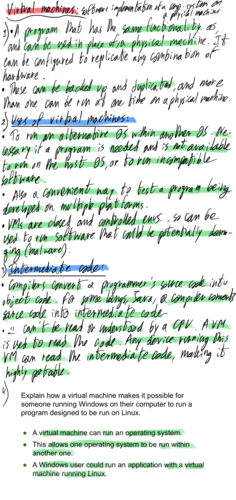 Virtual machines: software implementation of a comp. system on a physical machine
1) • A program that has the same functionality as
and can be used in place of a physical machine. It
can be configured to replicate any combination of
hardware.
• These can be backed up and duplicated, and more
than one can be run at one time on a physical machine.
2) Uses of virtual machines:
• To run an alternative OS within another OS - nec
essary if a program is needed and is not available
to run on the host OS, or to run incompatible
software.
• Also a convenient way to test a program being
developed on multiple platforms.
• VMs are closed and controlled envs. so can be
used to run software that could be potentially dama-
ging (malware).
3) Intermediate code:
• Compilers convert a programmer's source code into
object code. For some langs Java, a compiler converts
source code into intermediate code
• can't be read or understood by a CPU. A VM
is used to read the code. Any device running this
VM can read the intermediate code, making it
highly portable.
4)
Explain how a virtual machine makes it possible for
someone running Windows on their computer to run a
program designed to be run on Linux.
• A virtual machine can run an operating system.
• This allows one operating system to be run within
another one.
• A Windows user could run an application with a virtual
machine running Linux.